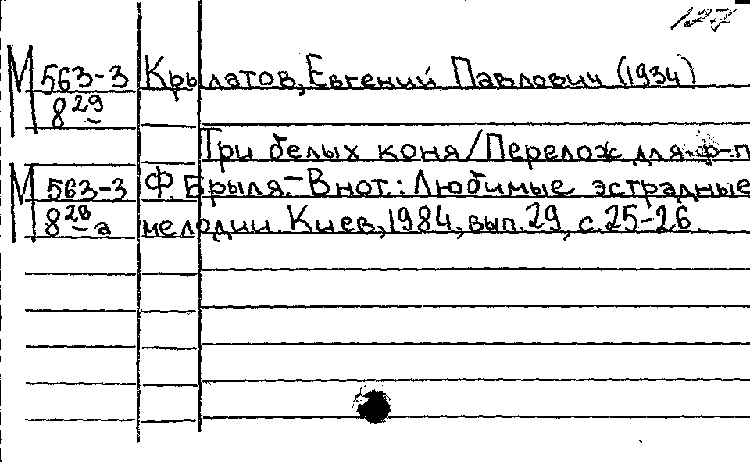 127
М 563-3 Крылатов, Евгений Павлович (1934)
8 29
Три белых коня/Перелож для ф-п
М 563-3 Ф. Брыля.- В нот.: Любимые эстрадные
8 28-а мелодии. Киев, 1984, вып. 29, с. 25-26.